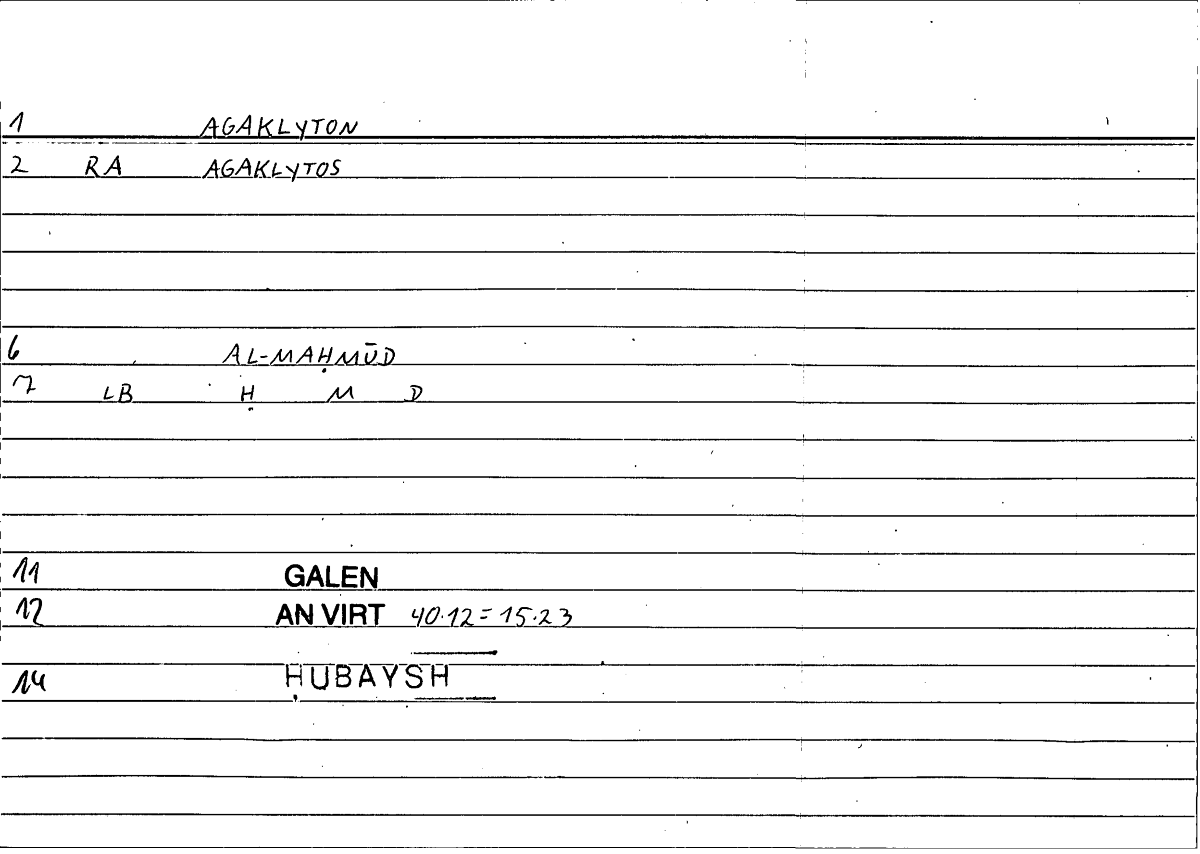 1 AGAKLYTON
2 RA AGAKLYTOS
6 AL-MAḤMŪD
7 LB Ḥ M D
11 GALEN
12 AN VIRT 40.12=15.23
14 ḤUBAYSH